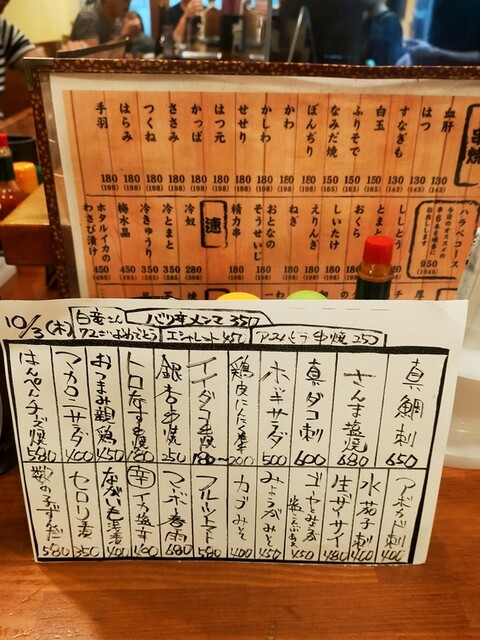 串焼
血肝 130 (143)
はつ 130 (143)
すなぎも 130 (143)
白玉 150 (165)
ふりそで 150 (165)
なみだ焼 150 (165)
ぼんぢり 180 (198)
かわ 180 (198)
かしわ 180 (198)
せせり 180 (198)
はつ元 180 (198)
かっぱ 180 (198)
ささみ 180 (198)
つくね 180 (198)
はらみ 180 (198)
手羽 180 (198)
ハラペコース
950 (1045)
ししとう
とまと
おくら
しいたけ
えりんぎ
ねぎ 180 (198)
おとなのそうせいじ 500
精力串 180 (198)
速
冷奴 280
冷とまと 350
冷きゅうり 350
梅水晶 450
ホタルイカのわさび漬け 450
10/3(木)
バリ辛メンマ 350
エシャレット 450
アスパラ串焼 250
真鯛刺 650
さんま塩焼 680
真ダコ刺 600
ポテサラダ 500
鶏皮にんにく串 200
イイダコ串焼 180〜
銀杏串焼 250
トロなす串焼 280
おつまみ親鶏 450
マカロニサラダ 400
はんぺんチーズ焼 580
アボカド刺 400
水茄子刺 400
生ザーサイ 480
ゴーヤとみょうが塩こんぶあえ 450
みょうがみそ 450
カブみそ 400
フルーツトマト 580
マーボー春雨 680
辛イカ塩辛
ながいも浅漬 400
セロリ漬 350
数の子ずんだ 580